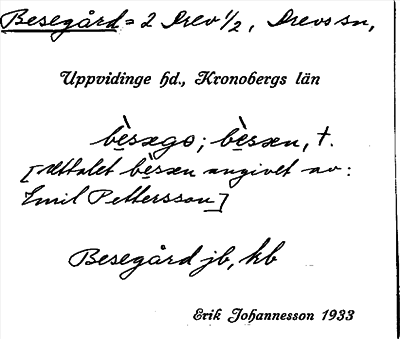 Besegård = 2 Drev 1/2, Drevs sn,
Uppvidinge hd., Kronobergs län
bèsægo; bèsæn, †.
[uttalet bèsæn angivet av:
Emil Pettersson]
Besegård jb, kb
Erik Johannesson 1933